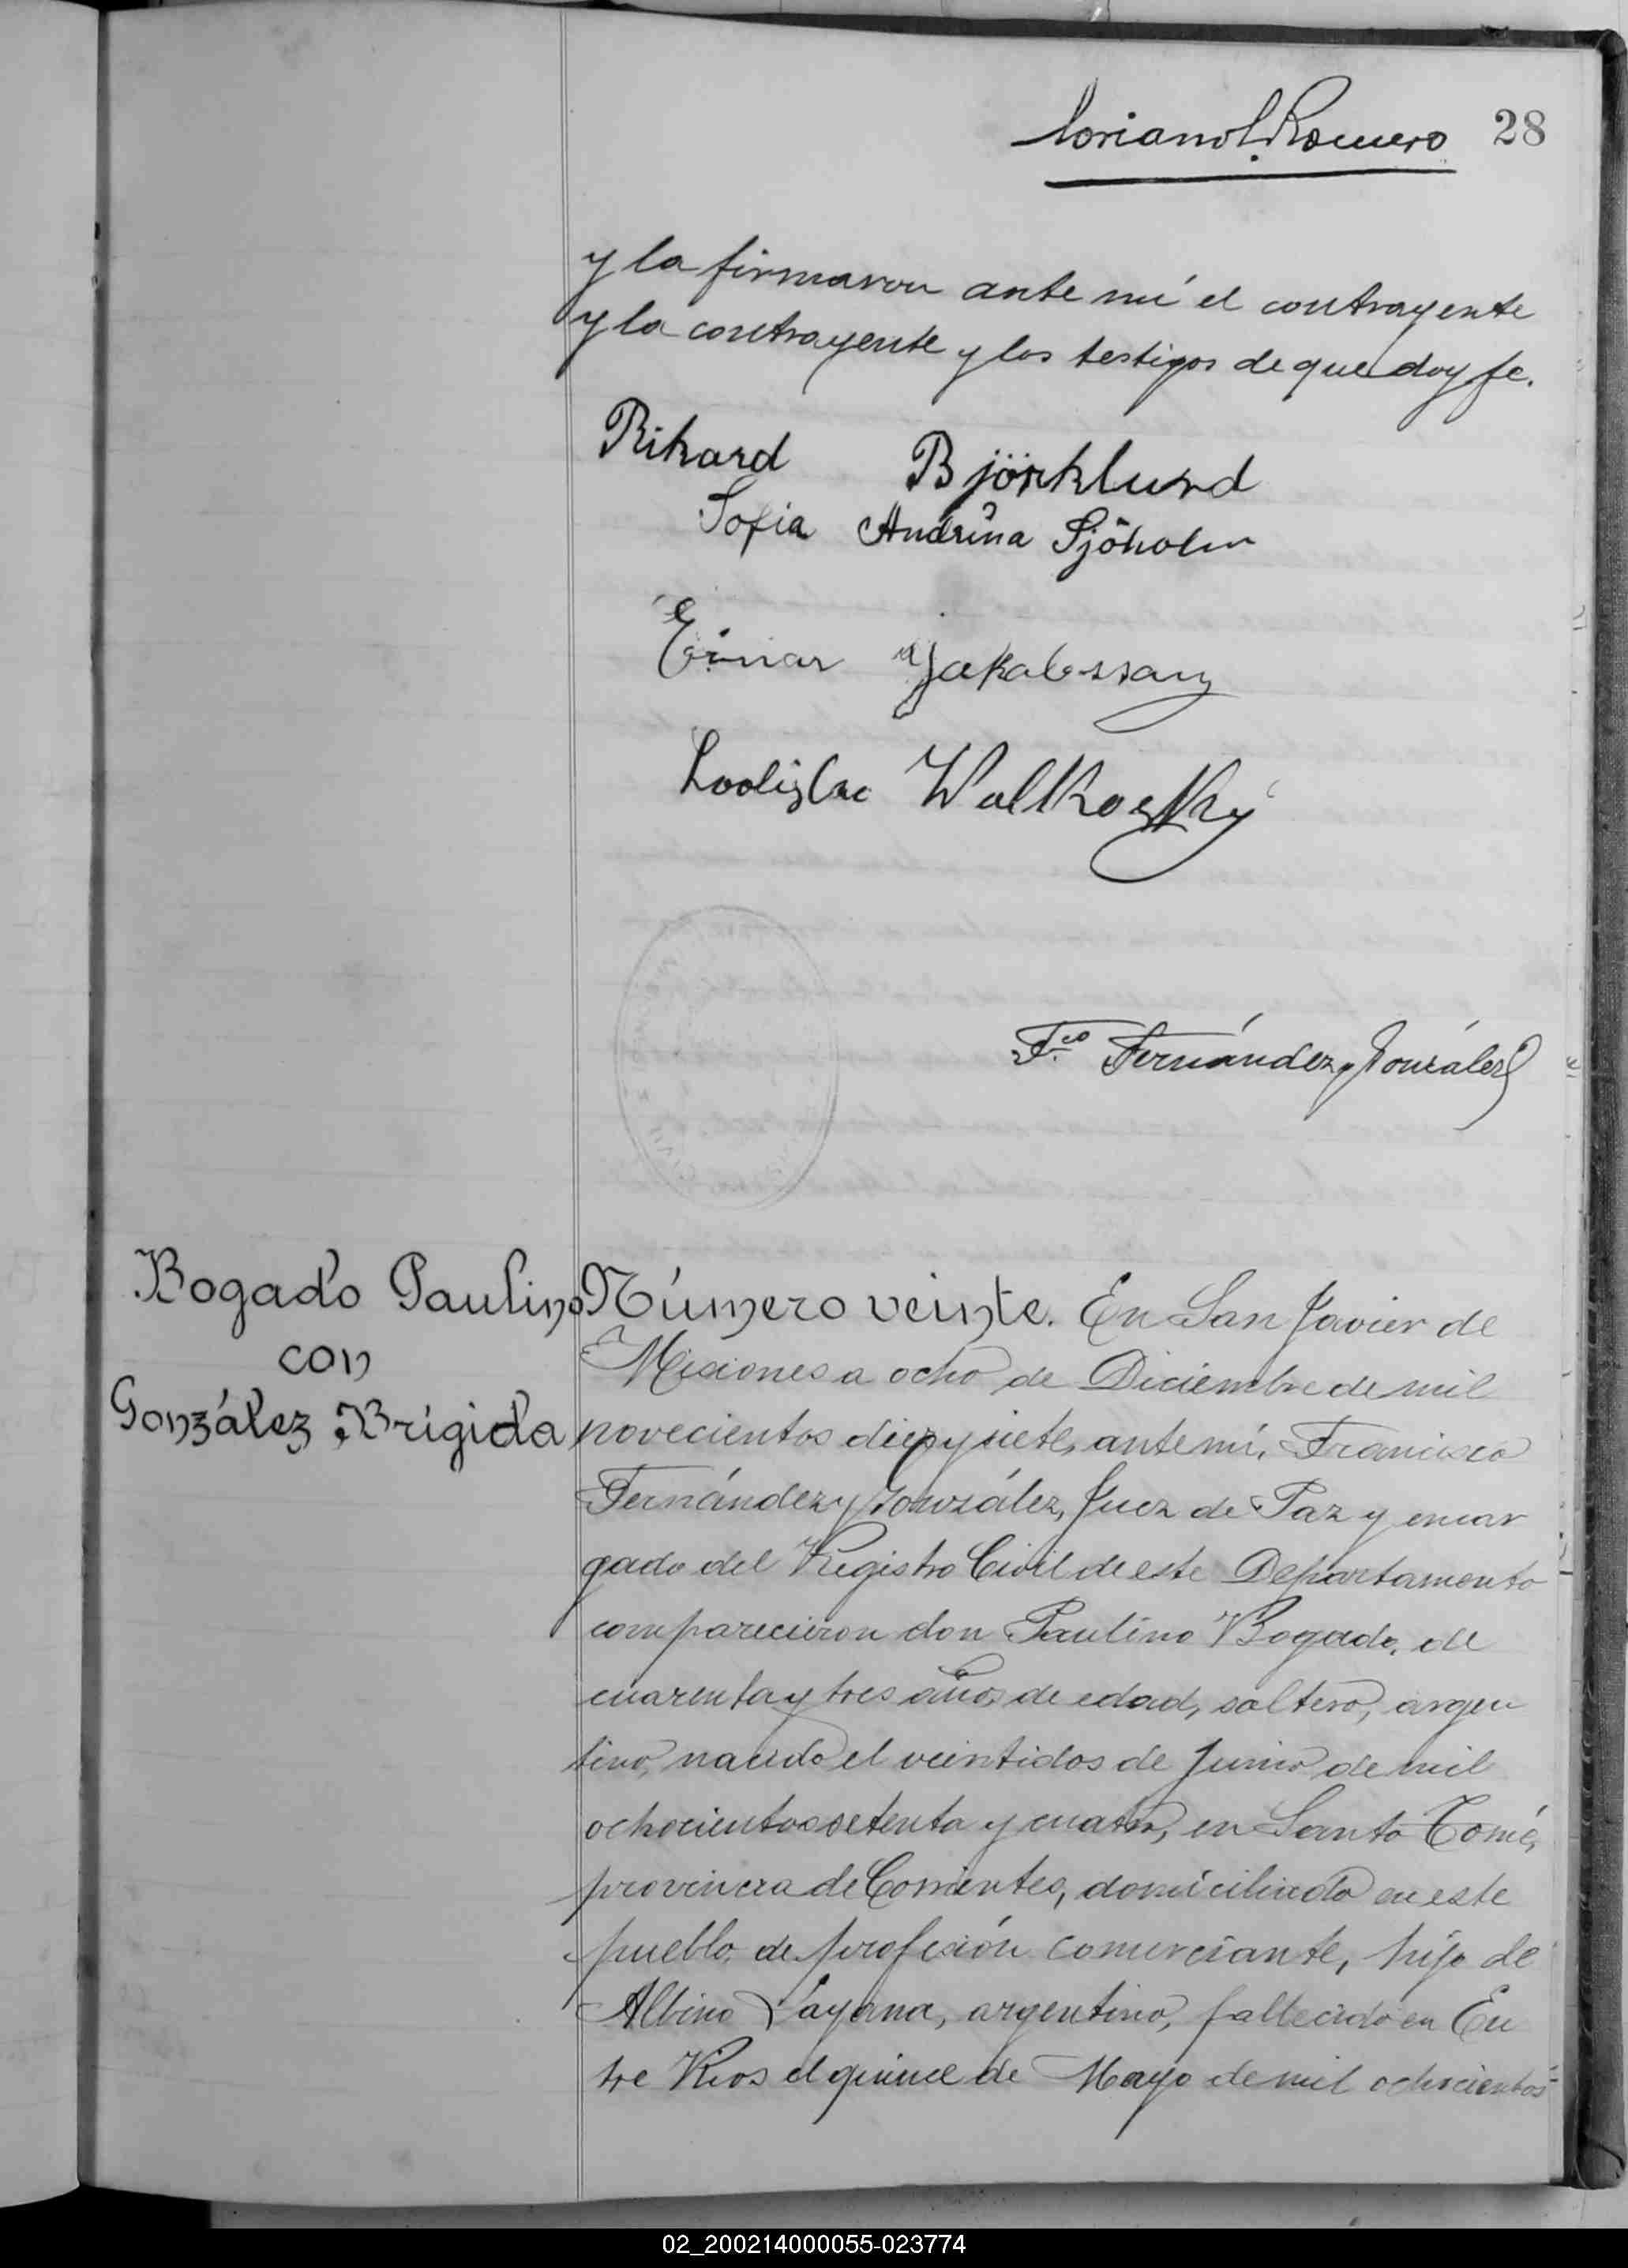 Soriano L. Romero 28
y la firmaron ante mí el contrayente
y la contrayente y los testigos de que doy fe.
Rikard Björklund
Sofia Andrina Sjöholm
Einar Jakobsson
Walkosky
Fco Fernández y González
Bogado Paulino
con
González Brígida
Número veinte. En San Javier de
Misiones a ocho de Diciembre de mil
novecientos diez y siete, ante mí, Francisco
Fernández y González, Juez de Paz y encar
gado del Registro Civil de este Departamento
comparecieron don Paulino Bogado, de
cuarenta y tres años de edad, soltero, argen
tino, nacido el veintidos de Junio de mil
ochocientos setenta y cuatro, en Santo Tomé,
provincia de Corrientes, domiciliado en este
pueblo, de profesión comerciante, hijo de
Albino Layana, argentino, fallecido en En
tre Rios el quince de Mayo de mil ochocientos
02_200214000055-023774